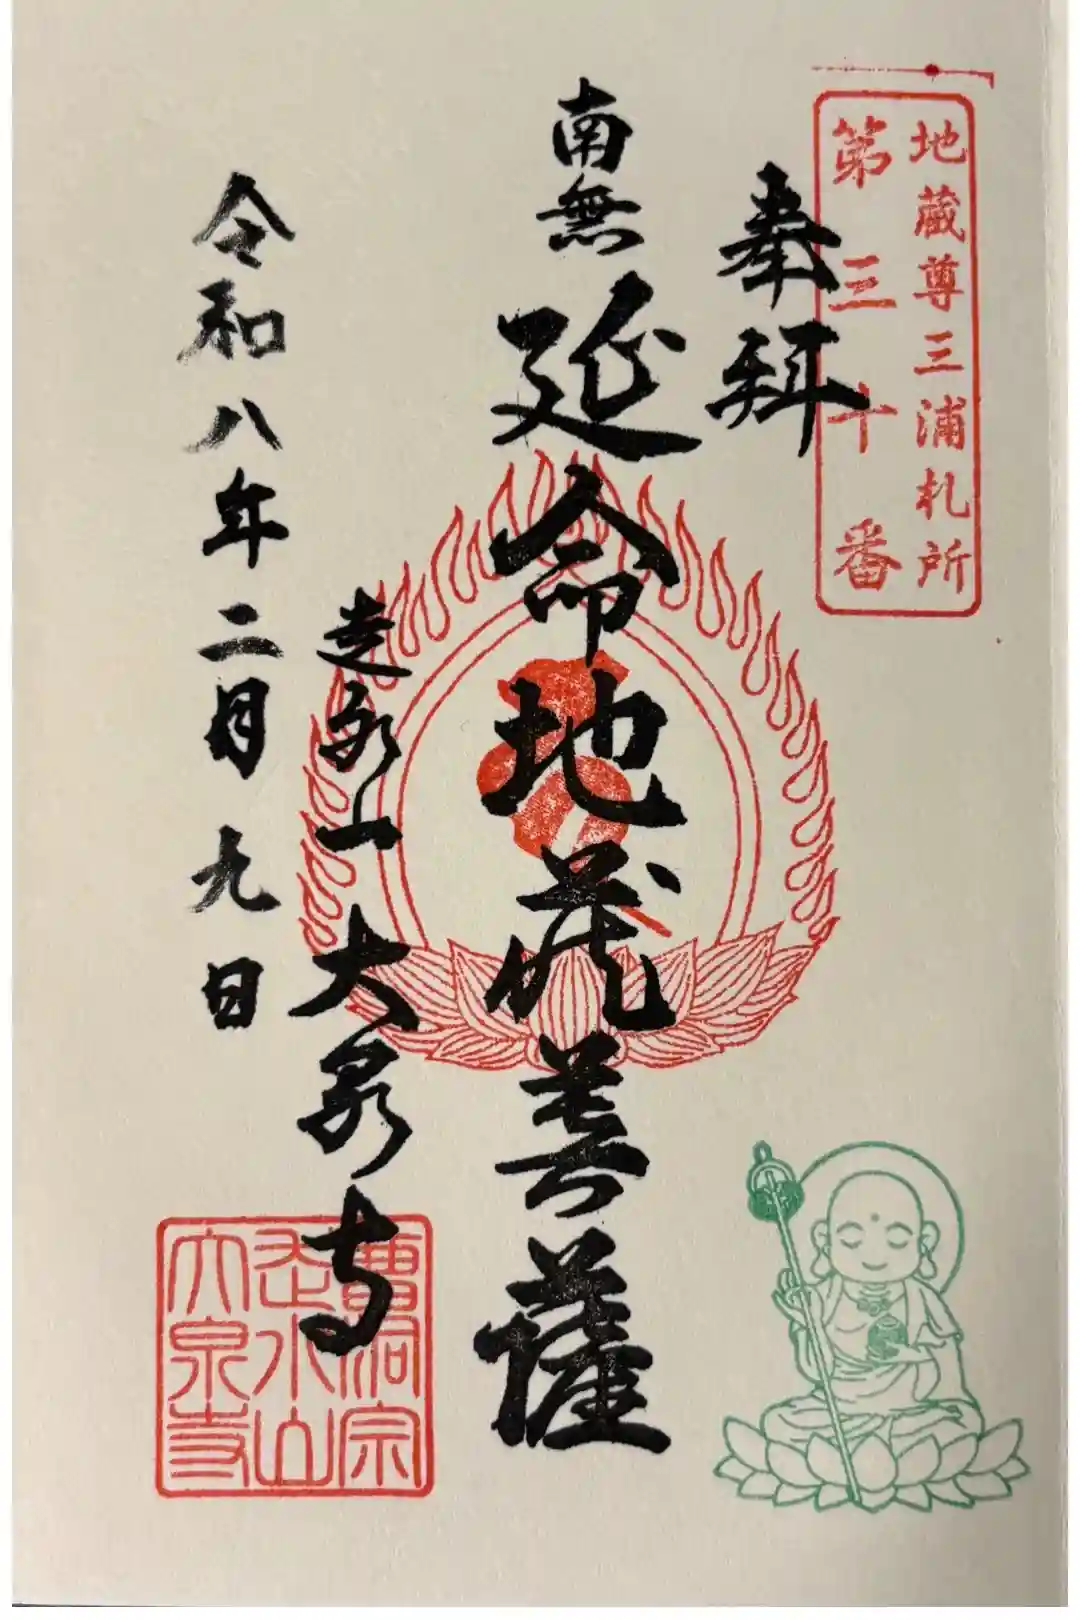 地蔵尊三浦札所
第三十番
奉拝
南無延命地蔵菩薩
走水山大泉寺
令和八年二月九日
曹洞宗
走水山
大泉寺